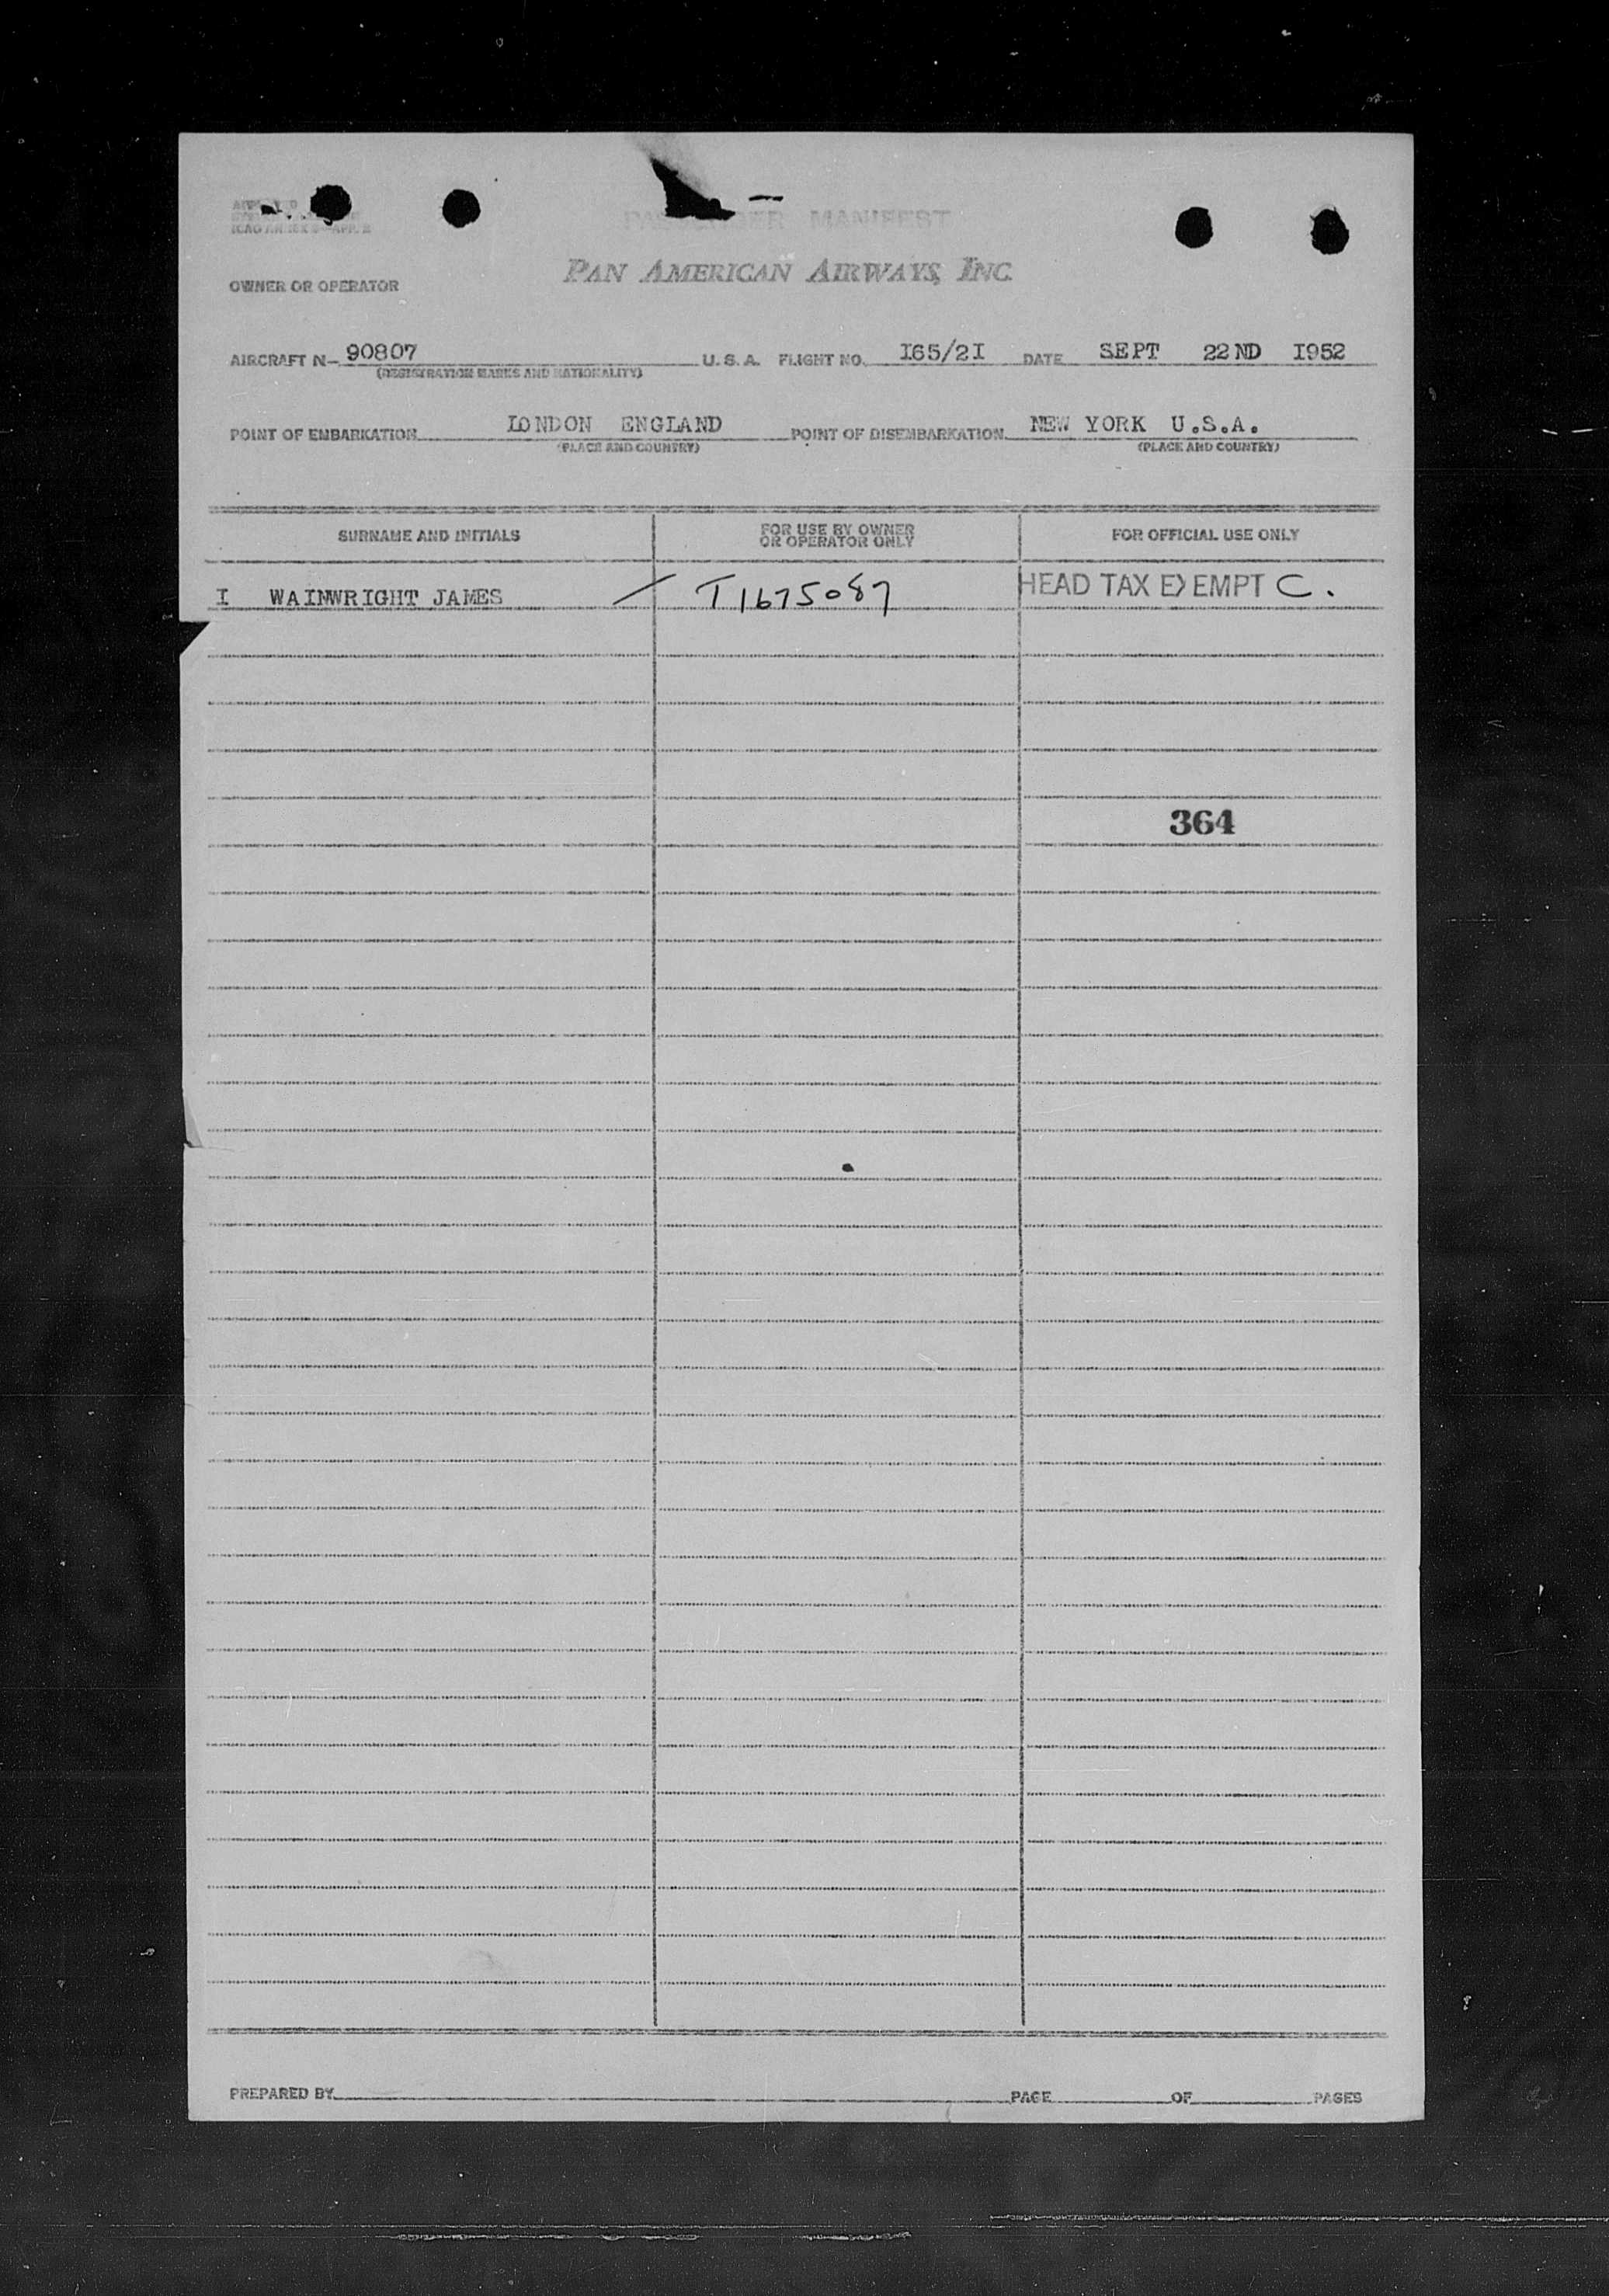 MANIFEST
PAN AMERICAN AIRWAYS, INC.
OWNER OR OPERATOR
AIRCRAFT N- 90807 U. S. A. FLIGHT NO. I65/2I DATE SEPT 22ND I952
(REGISTRATION MARKS AND NATIONALITY)
POINT OF EMBARKATION LONDON ENGLAND POINT OF DISEMBARKATION NEW YORK U.S.A.
(PLACE AND COUNTRY) (PLACE AND COUNTRY)
SURNAME AND INITIALS FOR USE BY OWNER OR OPERATOR ONLY FOR OFFICIAL USE ONLY
I WAINWRIGHT JAMES / T1675087 HEAD TAX EXEMPT C.
364
PREPARED BY PAGE OF PAGES